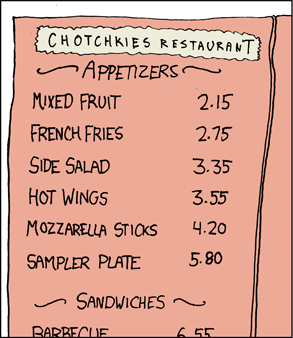 CHOTCHKIES RESTAURANT
APPETIZERS
MIXED FRUIT 2.15
FRENCH FRIES 2.75
SIDE SALAD 3.35
HOT WINGS 3.55
MOZZARELLA STICKS 4.20
SAMPLER PLATE 5.80
SANDWICHES
BARBECUE 6.55